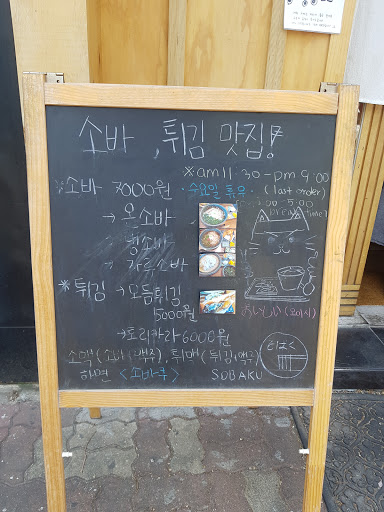 소바, 튀김 맛집!
※am 11:30-pm 9:00
※소바 7000원 수요일 휴무 (last order)
→ 온소바
→ 냉소바
→ 카레소바
※튀김 → 모듬튀김
5000원
→토리카라 6000원
소맥(소바&맥주), 튀맥(튀김&맥주)
하면 <소바쿠>
SOBAKU